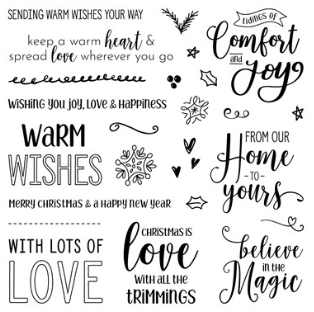 SENDING WARM WISHES YOUR WAY
keep a warm heart &
spread love wherever you go
Wishing you joy, love & happiness
WARM
WISHES
Merry Christmas & a happy new year
WITH LOTS OF
LOVE
tidings of
Comfort
and
Joy
FROM OUR
Home
-TO-
yours
CHRISTMAS IS
love
WITH ALL THE
TRIMMINGS
believe
IN THE
Magic